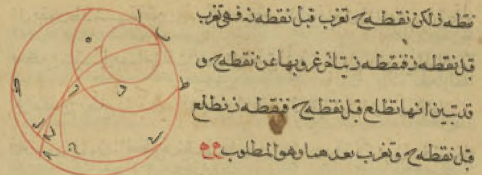 نقطه ز لكن نقطه ح تغرب قبل نقطه ز ففى تغرب
قبل نقطه ز فنقطه ز يتاخر غروبها عن نقطه ح و
قد تبين انها تطلع قبل نقطه ح فنقطه ز تطلع
قبل نقطه ح وتغرب بعدها وهو المطلوب